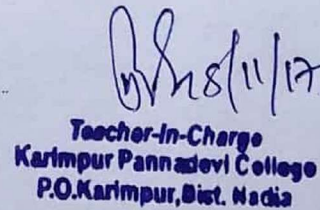 8/11/17
Teacher-In-Charge
Karimpur Pannadevi College
P.O.Karimpur,Dist. Nadia